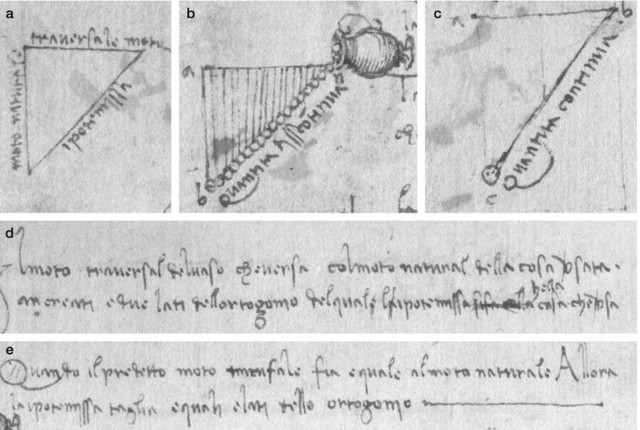 a
traversale moto
moto naturale
ipotenissa
b
a
Quantita discontinua
b
c
a b
Quantita continua
c
d
l moto traversal del vaso che versa col moto natural della cosa versata
an creati e due lati dell ortogonio del quale l ipotenissa della cosa
e
Quando il predetto moto fia equale al moto naturale Allora
la ipotenissa taglia equali e lati dello ortogonio